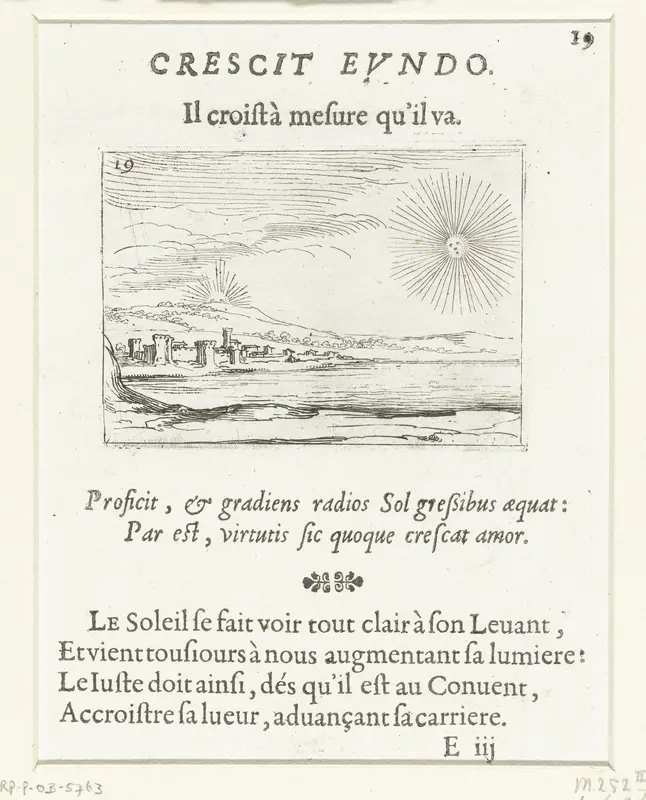 19
CRESCIT EVNDO.
Il croiſt à meſure qu'il va.
19
Proficit, & gradiens radios Sol greſſibus æquat:
Par eſt, virtutis ſic quoque creſcat amor.
LE Soleil ſe fait voir tout clair à ſon Leuant,
Et vient touſiours à nous augmentant ſa lumiere:
Le Iuſte doit ainſi, dés qu'il eſt au Conuent,
Accroiſtre ſa lueur, aduançant ſa carriere.
E iij
RP-P-OB-5763
M.252 II